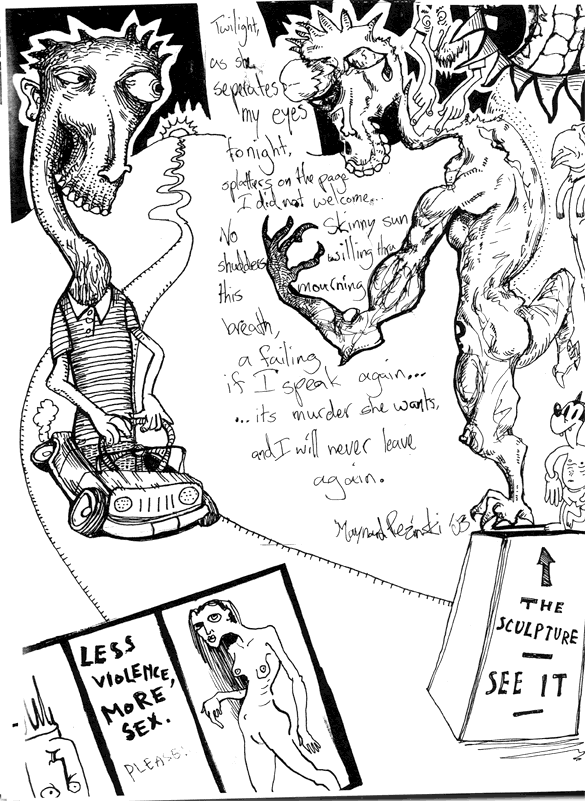 Twilight,
as she
seperates
my eyes
tonight,
splatters on the page
I did not welcome...
No skinny sun
shudders willing thru
this mourning
breath,
a failing
if I speak again...
...its murder she wants,
and I will never leave
again.
Maynard '03
LESS
VIOLENCE,
MORE
SEX.
PLEASE!
THE
SCULPTURE
SEE IT